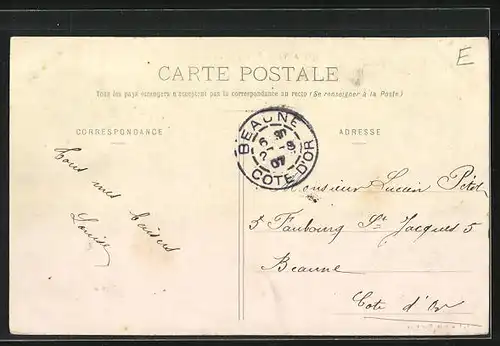 E
CARTE POSTALE
Tous les pays étrangers n'acceptent pas la correspondance au recto (Se renseigner à la Poste)
CORRESPONDANCE
ADRESSE
BEAUNE
CÔTE-D'OR
Tous mes baisers
Louise
Monsieur Lucien Petot
5 Faubourg St Jacques 5
Beaune
Cote d'Or